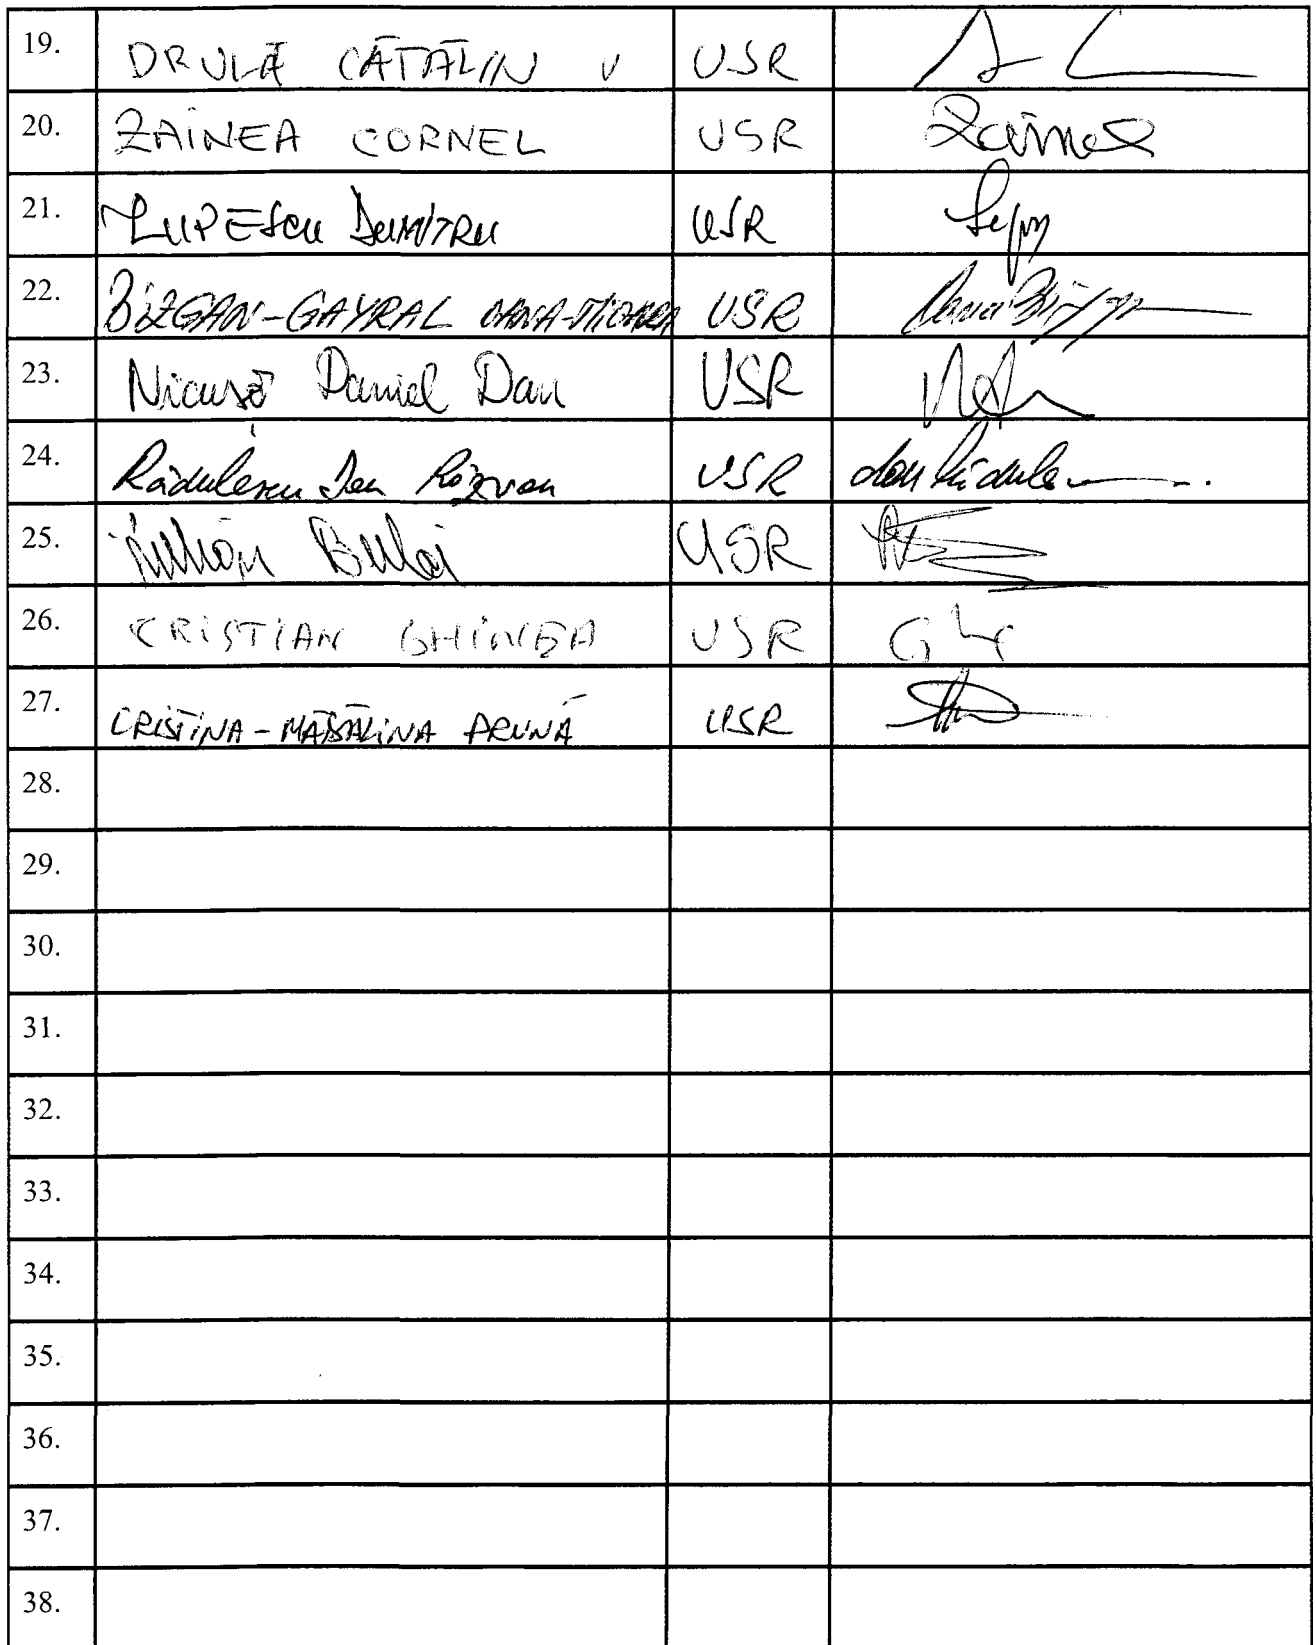 19. DRULĂ CĂTĂLIN USR
20. ZAINEA CORNEL USR Zainea
21. LUPESCU DUMITRU USR
22. BIZGAN-GAYRAL OANA-MIOARA USR
23. Nicușor Daniel Dan USR
24. Rădulescu Dan Răzvan USR
25. Iulian Bulai USR
26. CRISTIAN GHINEA USR
27. CRISTINA-MĂDĂLINA PRUNĂ USR
28.
29.
30.
31.
32.
33.
34.
35.
36.
37.
38.